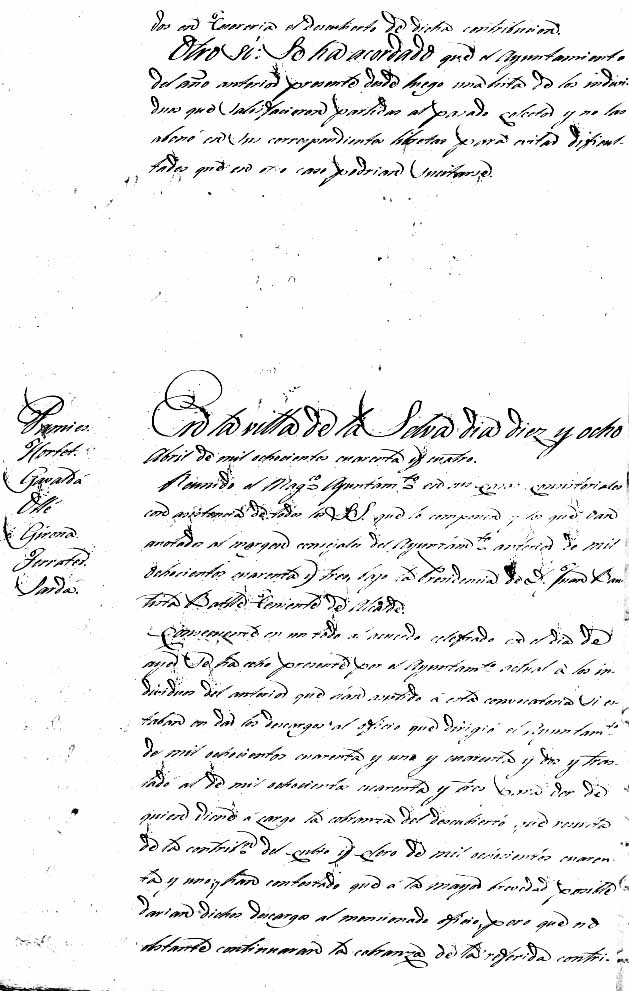 dos en Tesoreria el descubierto de dicha contribucion.
Otro sí: Se ha acordado que el Ayuntamiento
del año anterior presente desde luego una lista de los indivi-
duos que satisfacieron partidas al pasado colector y no las
abonó en sus correspondientes libretas para evitar dificul-
tades que en otro caso podrian suscitarse.
Pamies.
Hortet.
Gavaldá
Ollé
Girona
Ferraté.
Sardá.
En la villa de la Selva dia diez y ocho
Abril de mil ochocientos cuarenta y cuatro.
Reunido el Mag.co Ayuntam.to en sus casas consistoriales
con asistencia de todos los SS. que lo componen y los que van
anotados al margen concejales del Ayuntam.to anterior de mil
ochocientos cuarenta y tres, bajo la Presidencia de D. Juan Bau-
tista Batlle Teniente de Alcalde.
Consecuente en un todo al acuerdo celebrado en el dia de
ayer se ha echo presente por el Ayuntam.to actual á los in-
dividuos del anterior que han asistido á esta convocatoria si es-
taban en dar los descargos al oficio que dirigió el Ayuntam.to
de mil ochocientos cuarenta y uno y cuarenta y dos y tras-
ladó al de mil ochocientos cuarenta y tres para ver de
quien viene á cargo la cobranza del descubierto que resulta
de la contrib.n del Culto y Clero de mil ochocientos cuaren-
ta y uno, y han contestado que á la mayor brevedad posible
darian dichos descargos al mencionado oficio, pero que no
obstante continuaran la cobranza de la referida contri-